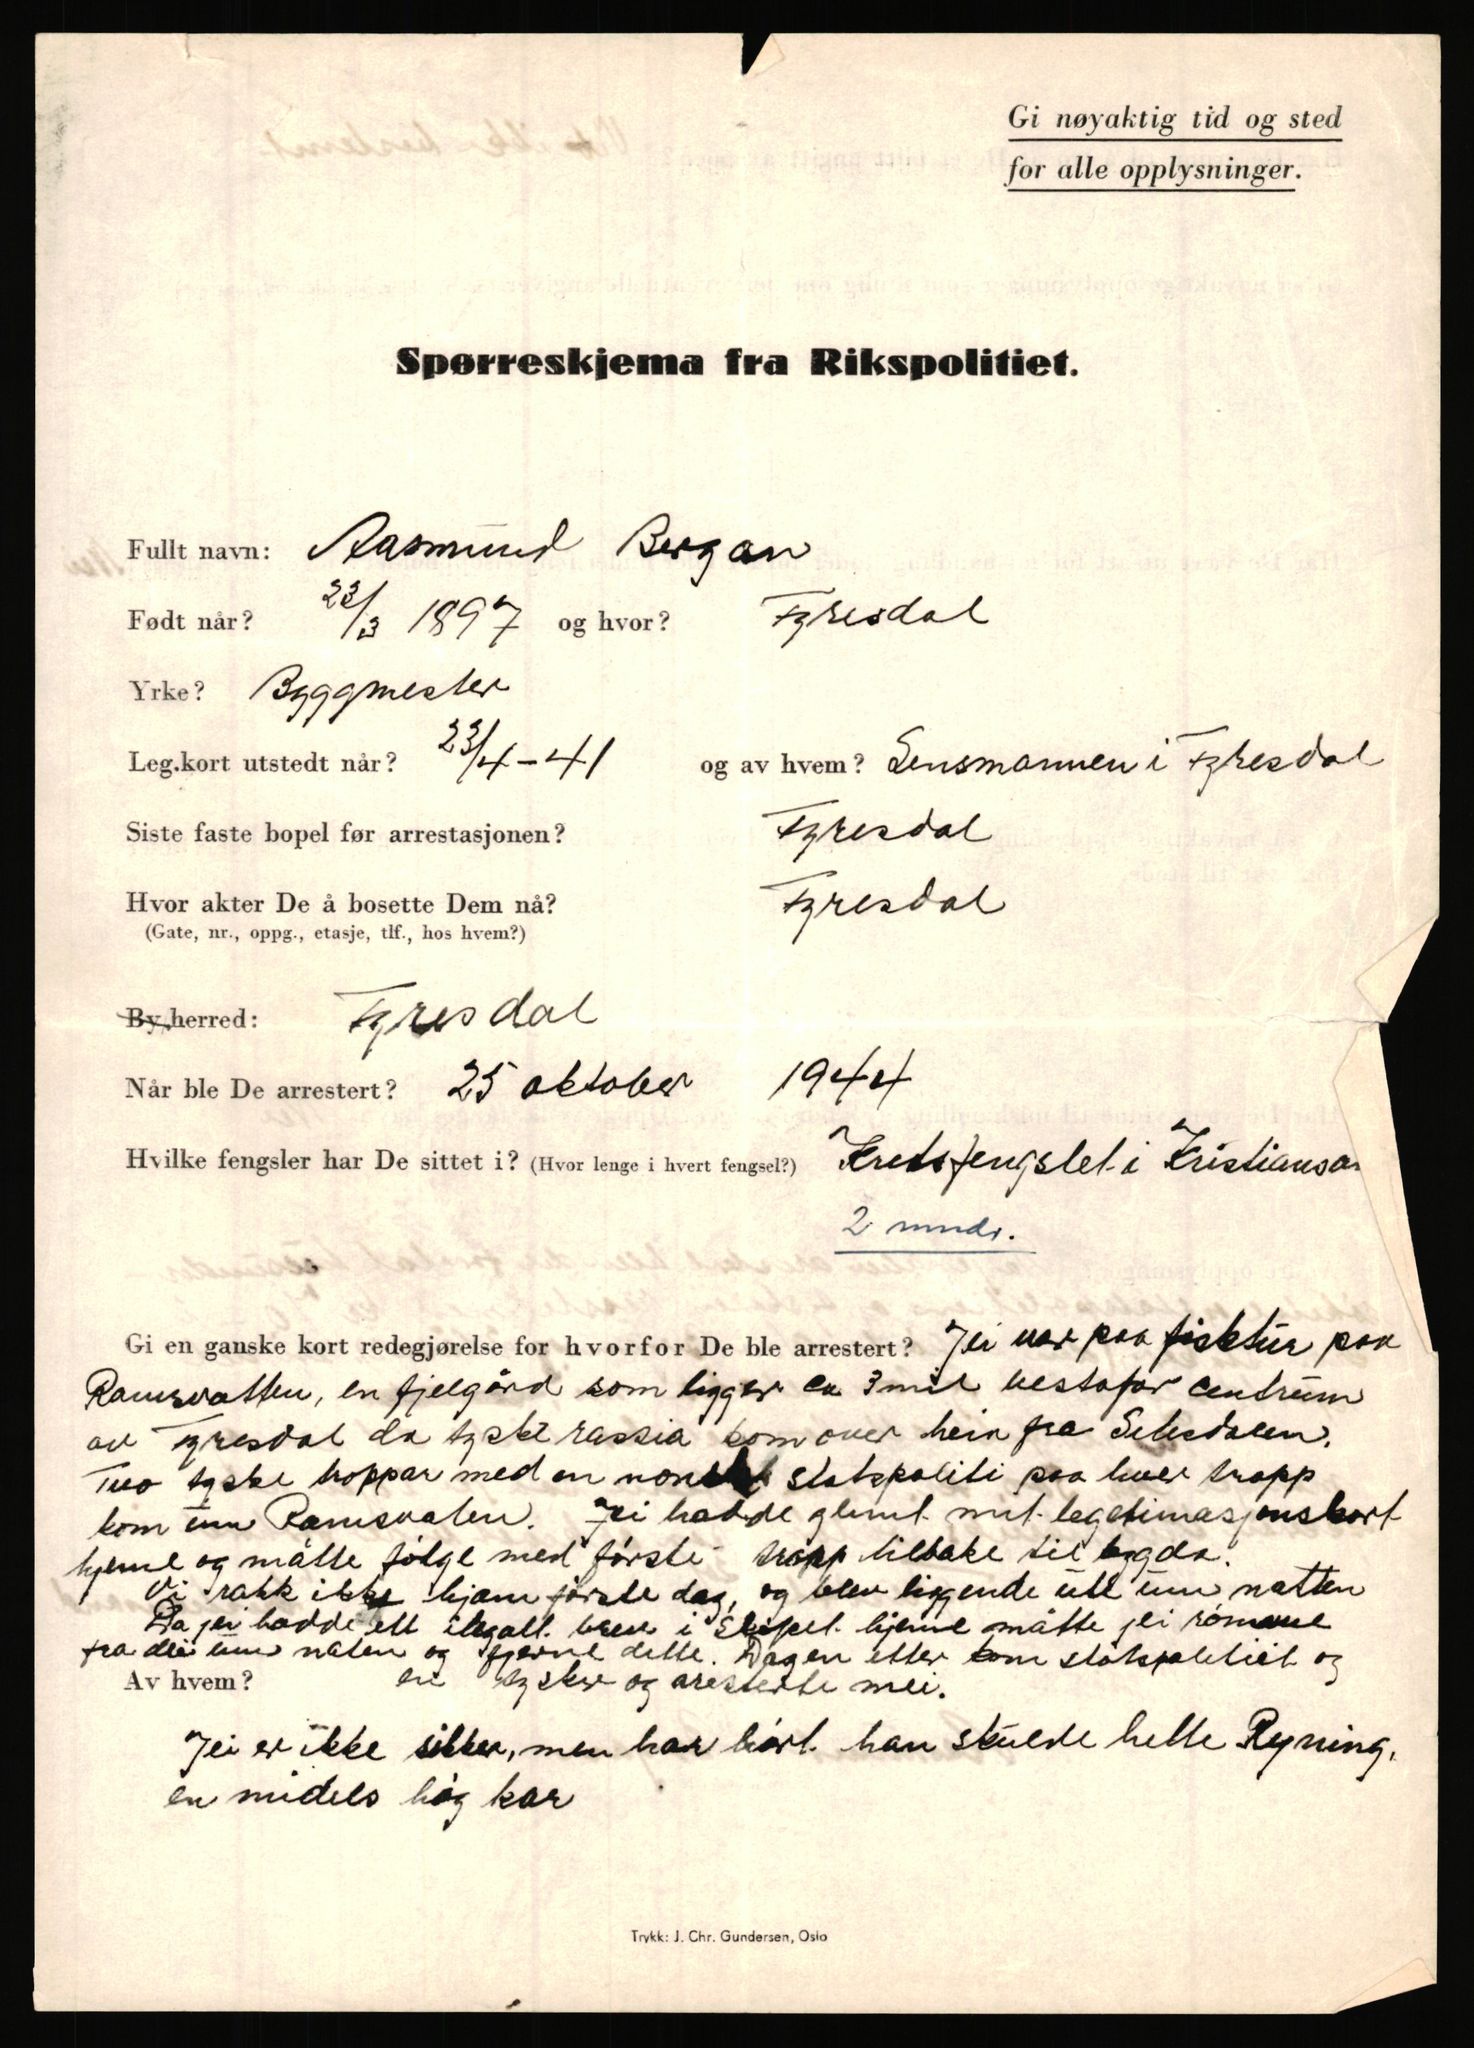 Gi nøyaktig tid og sted
for alle opplysninger.
Spørreskjema fra Rikspolitiet.
Fullt navn: Aasmund Bergan
Født når? 23/3 1897 og hvor? Fyresdal
Yrke? Byggmester
Leg.kort utstedt når? 23/4-41 og av hvem? Lensmannen i Fyresdal
Siste faste bopel før arrestasjonen? Fyresdal
Hvor akter De å bosette Dem nå? Fyresdal
(Gate, nr., oppg., etasje, tlf., hos hvem?)
By, herred: Fyresdal
Når ble De arrestert? 25 oktober 1944
Hvilke fengsler har De sittet i? (Hvor lenge i hvert fengsel?) Kretsfengslet i Kristiansa
2 mndr.
Gi en ganske kort redegjørelse for hvorfor De ble arrestert? Jei var paa fisktur paa
Ramsvatten, en fjelgård som ligger ca 3 mil vestafor centrum
av Fyresdal da tyske rassia kom over heia fra Setesdalen.
Tvo tyske troppar med en norsk statspoliti paa hver tropp
kom inn Ramsvaten. Jei hadde glemt mit legetimasjonskort
hjeme og måtte følge med første tropp tilbake til bygda.
Vi rakk ikke hjem første dag, og blev liggende ute um natten
Da jei hadde ett ilegalt brev i skapet hjeme måtte jei rømme
fra dei um naten og fjerne dette. Dagen etter kom statspolitiet og
Av hvem? en tysker og aresterte mei.
Jei er ikke sikker, men har hørt han skulde hette Ryning,
en midels høg kar
Trykk: J. Chr. Gundersen, Oslo